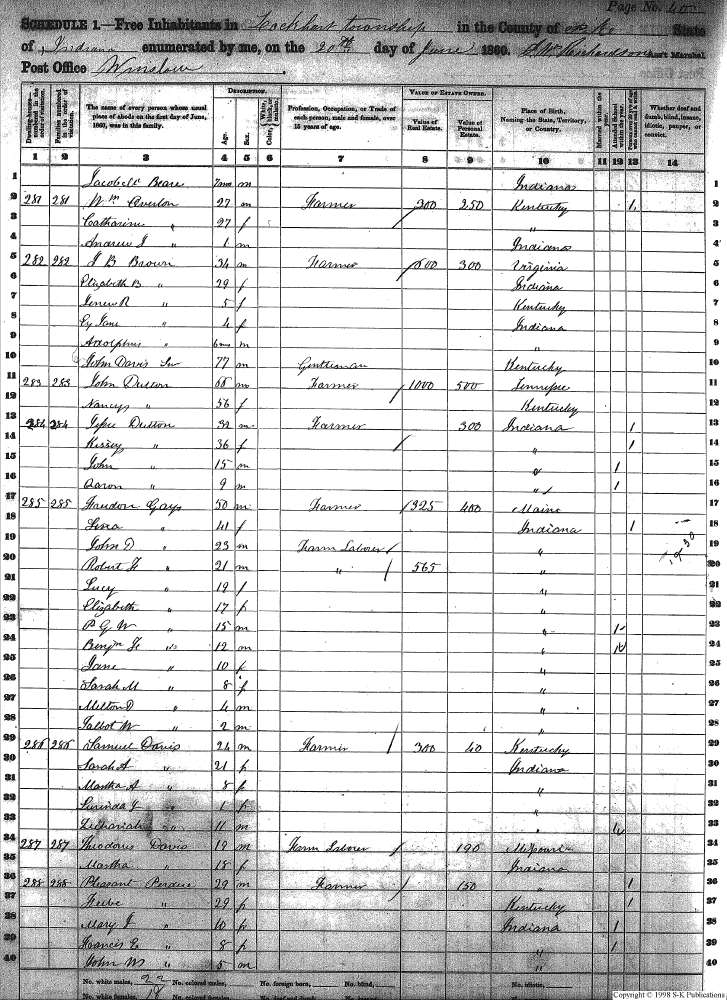 Page No. 40
SCHEDULE 1.—Free Inhabitants in Lockhart township in the County of Pike State
of Indiana enumerated by me, on the 20th day of June 1860. Richardson Ass't Marshal
Post Office Winslow
DESCRIPTION. VALUE OF ESTATE OWNED.
The name of every person whose usual place of abode on the first day of June, 1860, was in this family.
Age. Sex. Color, White, black, or mulatto.
Profession, Occupation, or Trade of each person, male and female, over 15 years of age.
Value of Real Estate. Value of Personal Estate.
Place of Birth, Naming the State, Territory, or Country.
Married within the year. Attended School within the year.
Whether deaf and dumb, blind, insane, idiotic, pauper, or convict.
1 2 3 4 5 6 7 8 9 10 11 12 13 14
1 Jacobell Beare 7mo m Indiana 1
2 281 281 Wm Overton 27 m Farmer 300 250 Kentucky 1 2
3 Catharine " 27 f " 3
4 Andrew J " 1 m Indiana 4
5 282 282 J B Brown 34 m Farmer 800 300 Virginia 5
6 Elizabeth B " 29 f Indiana 6
7 R " 5 f Kentucky 7
8 Jane " 4 f Indiana 8
9 Adolphus " 6mo m " 9
10 John Davis Sr 77 m Gentleman Kentucky 10
11 283 283 John Dutton 68 m Farmer 1000 500 Tennessee 11
12 Nancy " 56 f Kentucky 12
13 284 284 Dutton 32 m Farmer 300 Indiana 1 13
14 Kissey " 36 f " 1 14
15 John " 15 m " 1 15
16 Aaron " 9 m " 1 16
17 285 285 Gays 50 m Farmer 325 400 Maine 17
18 " 41 f Indiana 1 18
19 John D " 23 m Farm Laborer " 19
20 Robert F " 21 m " 565 " 20
21 Lucy " 19 f " 21
22 Elizabeth " 17 f " 22
23 P G W " 15 m " 1 23
24 Benjn F " 12 m " 1 24
25 Jane " 10 f " 25
26 Sarah M " 8 f " 26
27 Melton D " 4 m " 27
28 Talbot W " 2 m " 28
29 286 286 Samuel Davis 24 m Farmer 300 40 Kentucky 29
30 Sarah A " 21 f Indiana 30
31 Martha A " 8 f " 31
32 Lurinda J " 1 f " 32
33 Zachariah " 11 m " 1 33
34 287 287 Theodorus Davis 19 m Farm Laborer 190 Missouri 34
35 Martha " 18 f Indiana 35
36 288 288 Pleasant Perdue 29 m Farmer 150 " 1 36
37 Feebe " 29 f Kentucky 1 37
38 Mary J " 10 f Indiana 1 38
39 Francis E " 8 f " 1 39
40 John M " 5 m " 40
No. white males, 22 No. colored males, No. foreign born, No. blind, No. idiotic,
No. white females, 18 No. colored females,
Copyright © 1998 S-K Publications